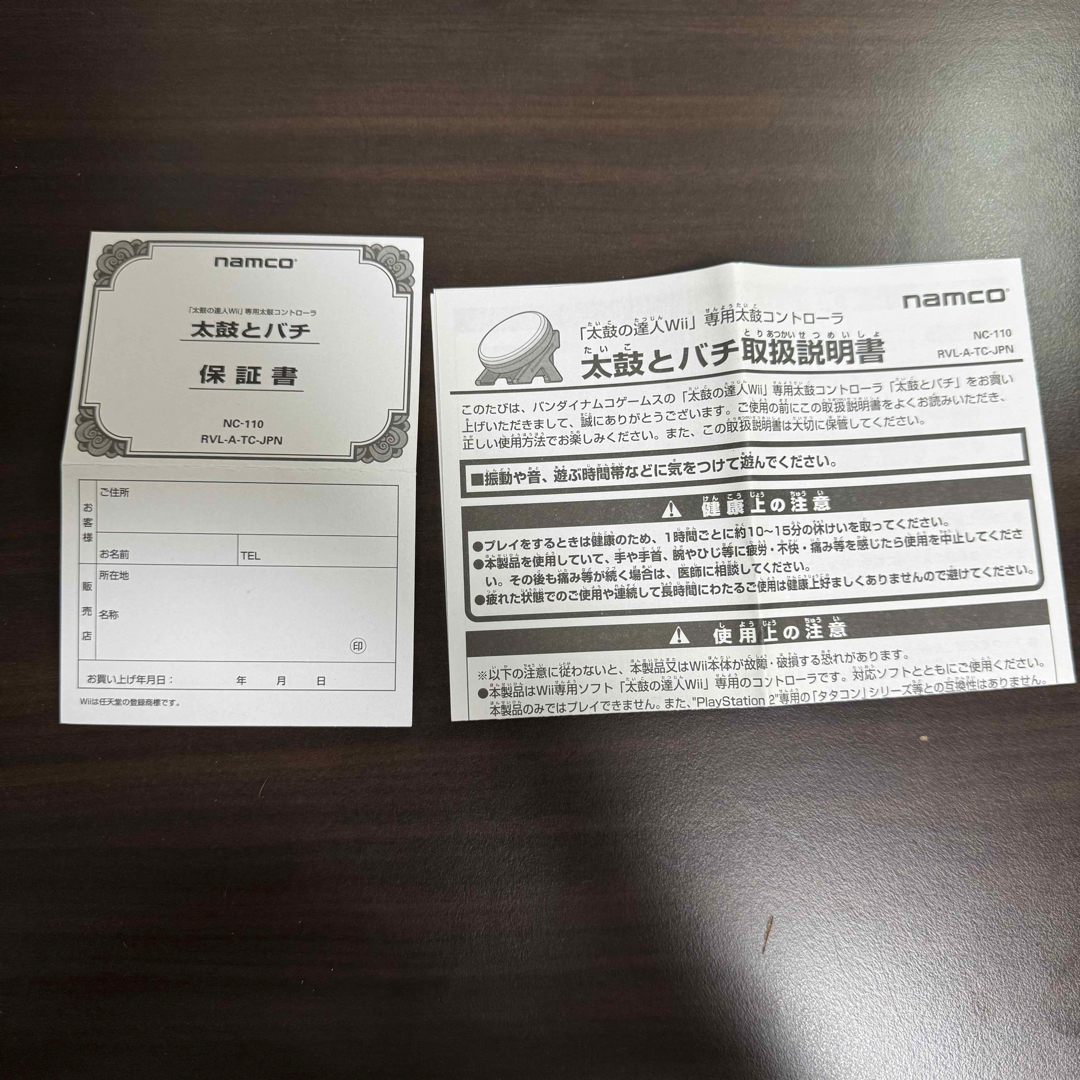 namco
「太鼓の達人Wii」専用太鼓コントローラ
太鼓とバチ
保証書
NC-110
RVL-A-TC-JPN
お客様
ご住所
お名前
TEL
販売店
所在地
名称
印
お買い上げ年月日: 年 月 日
Wiiは任天堂の登録商標です。
namco
「太鼓の達人Wii」専用太鼓コントローラ
太鼓とバチ取扱説明書
NC-110
RVL-A-TC-JPN
このたびは、バンダイナムコゲームスの「太鼓の達人Wii」専用太鼓コントローラ「太鼓とバチ」をお買い
上げいただきまして、誠にありがとうございます。ご使用の前にこの取扱説明書をよくお読みいただき、
正しい使用方法でお楽しみください。また、この取扱説明書は大切に保管してください。
■振動や音、遊ぶ時間帯などに気をつけて遊んでください。
健康上の注意
●プレイをするときは健康のため、1時間ごとに約10~15分の休けいを取ってください。
●本製品を使用していて、手や手首、腕やひじ等に疲労・不快・痛み等を感じたら使用を中止してくださ
い。その後も痛み等が続く場合は、医師に相談してください。
●疲れた状態でのご使用や連続して長時間にわたるご使用は健康上好ましくありませんので避けてください。
使用上の注意
※以下の注意に従わないと、本製品又はWii本体が故障・破損する恐れがあります。
●本製品はWii専用ソフト「太鼓の達人Wii」専用のコントローラです。対応ソフトとともにご使用ください。
本製品のみではプレイできません。また、"PlayStation 2"専用の「タタコン」シリーズ等との互換性はありません。